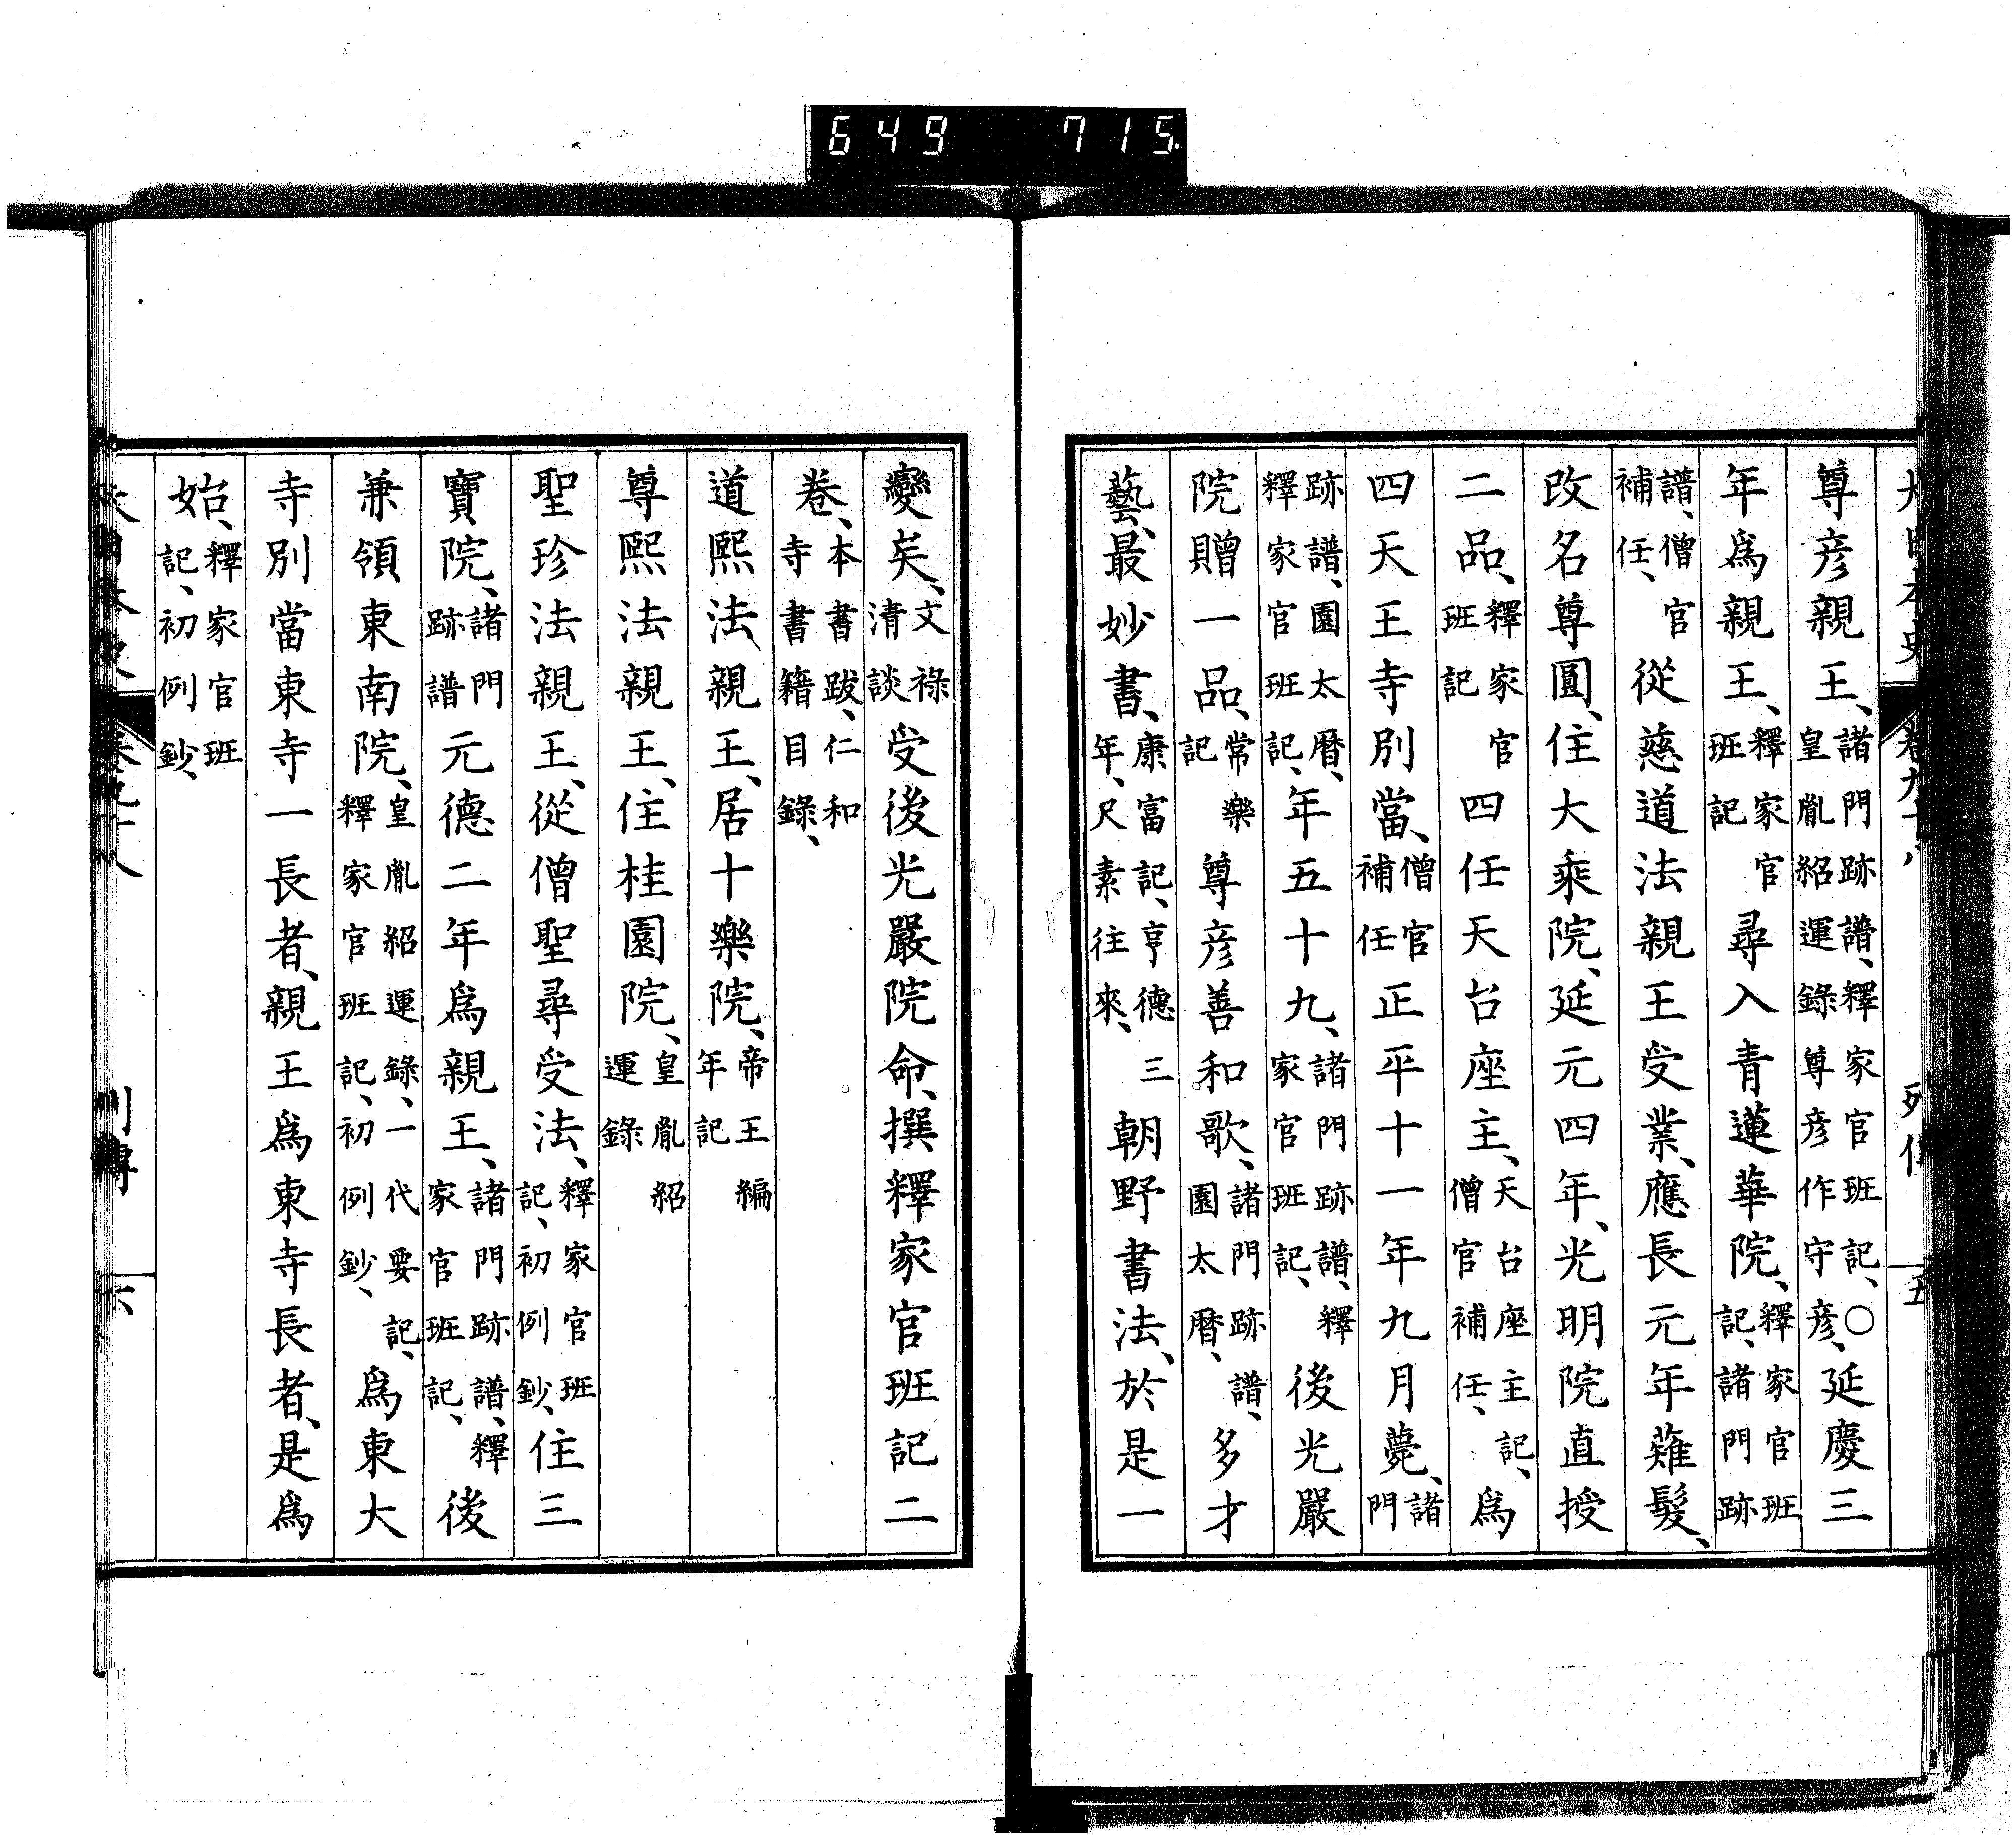 649 715.
大日本史 卷九十八 列傳 五
尊彥親王、諸門跡譜、釋家官班記、○皇胤紹運錄尊彥作守彥、延慶三
年爲親王、釋家官班記尋入青蓮華院、釋家官班記、諸門跡
譜、僧官補任、從慈道法親王受業、應長元年薙髮、
改名尊圓、住大乘院、延元四年、光明院直授
二品、釋家官班記四任天台座主、天台座主記、僧官補任、爲
四天王寺別當、僧官補任正平十一年九月薨、諸門
跡譜、園太曆、釋家官班記、年五十九、諸門跡譜、釋家官班記、後光嚴
院贈一品、常樂記尊彥善和歌、諸門跡譜、園太曆、多才
藝、最妙書、康富記、亨德三年、尺素往來、朝野書法、於是一
變矣、文祿清談受後光嚴院命、撰釋家官班記二
卷、本書跋、仁和寺書籍目錄、
道熙法親王、居十樂院、帝王編年記
尊熙法親王、住桂園院、皇胤紹運錄
聖珍法親王、從僧聖尋受法、釋家官班記、初例鈔、住三
寶院、諸門跡譜元德二年爲親王、諸門跡譜、釋家官班記、後
兼領東南院、皇胤紹運錄、一代要記、釋家官班記、初例鈔、爲東大
寺別當東寺一長者、親王爲東寺長者、是爲
始、釋家官班記、初例鈔、
大日本史 卷九十八 列傳 六